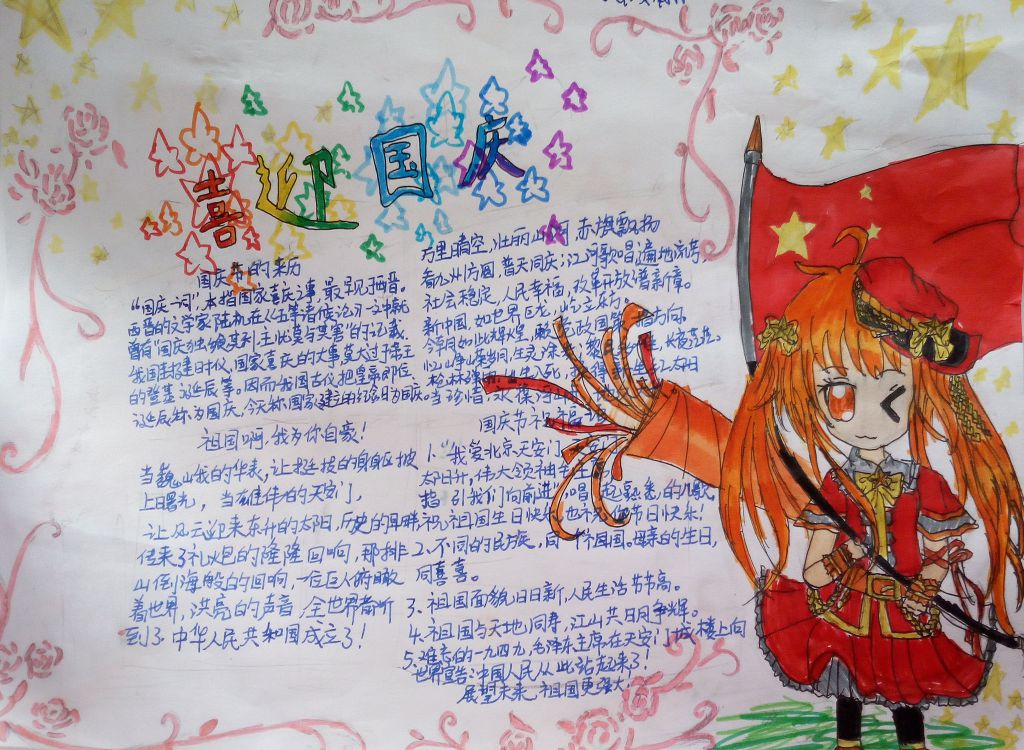 喜迎国庆
国庆节的来历
“国庆”一词,本指国家喜庆之事,最早见于西晋。
西晋的文学家陆机在《五等诸侯论》一文中就
曾有“国庆独飨其利,主忧莫与其害”的记载、
我国封建时代、国家喜庆的大事莫大过于帝王
的登基、诞辰等。因而我国古代把皇帝即位、
诞辰称为国庆。今天称国家建立的纪念日为国庆。
祖国啊,我为你自豪!
当巍峨的华表,让挺拔的身躯披
上曙光,当雄伟的天安门,
让风云迎来东升的太阳,历史的耳畔
传来了礼炮的隆隆回响,那排
山倒海般的回响,一位巨人俯瞰
着世界,洪亮的声音,全世界都听
到了中华人民共和国成立了!
万里晴空,壮丽山河,赤旗飘扬
看九州方圆,普天同庆;江河歌唱,遍地流芳,
社会稳定,人民幸福,改革开放谱新章。
新中国,如世界巨龙,屹立东方。
今宵月如此辉煌,
忆山峥嵘岁月,生灵涂
枪林弹雨,出生入死,太阳
当珍惜,永保
国庆节祝福语
1.“我爱北京天安门
太阳升,伟大领袖
指引我们向前进”,唱起熟悉的儿歌,
祝祖国生日快乐,也祝你节日快乐!
2.不同的民族,同一个国。母亲的生日,
同喜喜。
3.祖国面貌日日新,人民生活节节高。
4.祖国与天地同寿,江山共日月争辉。
5.难忘的一九四九,毛泽东主席在天安门城楼上向
世界宣告:中国人民从此站起来了!
展望未来,祖国更强大!